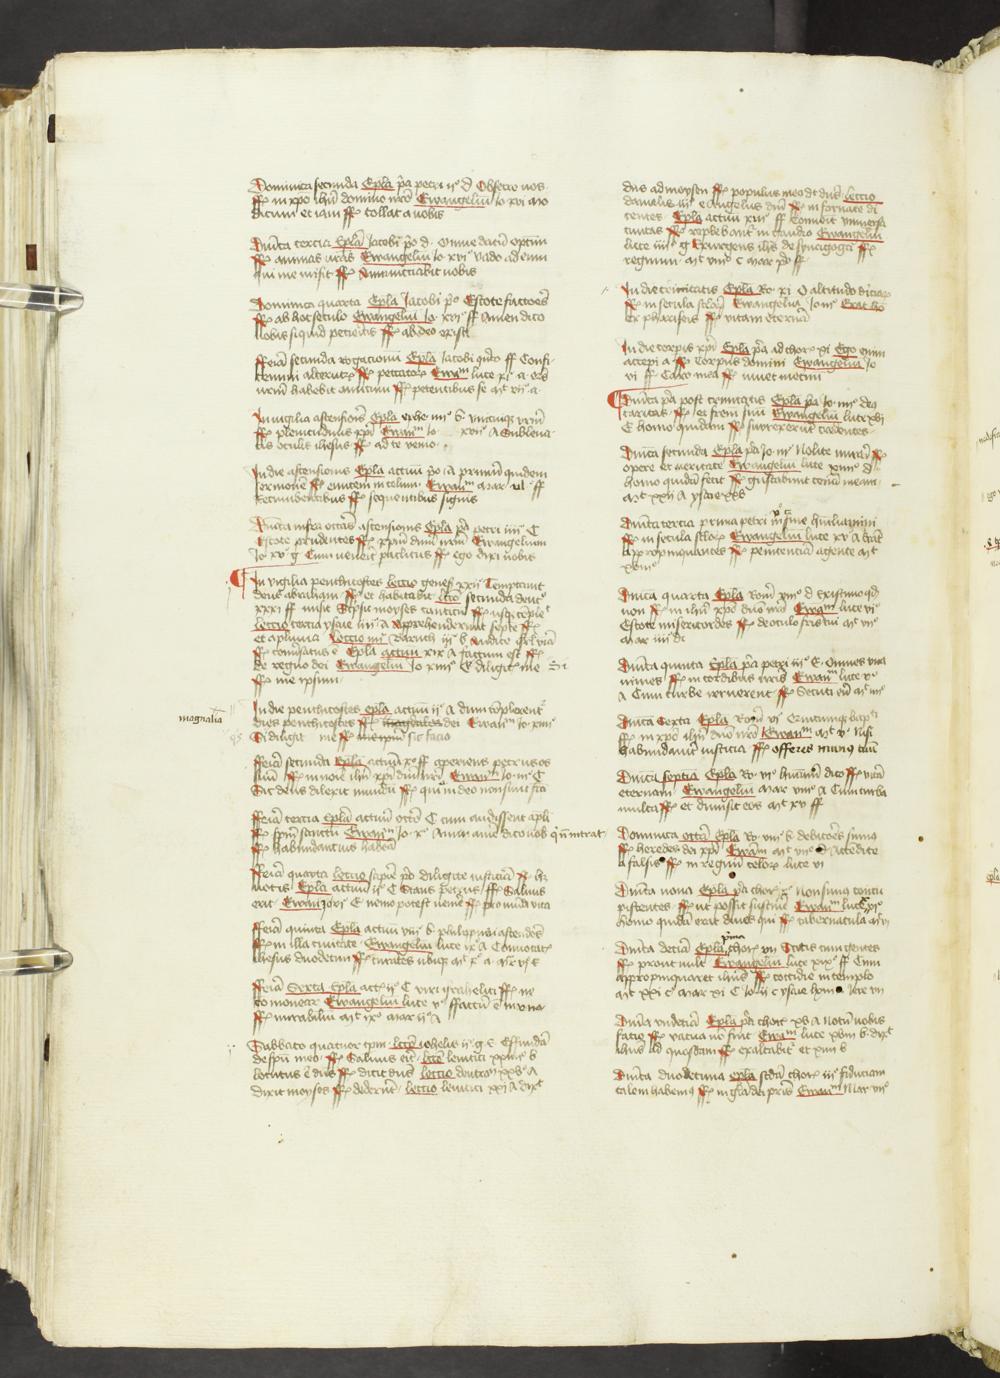 Dominica secunda Epla pa petri ii° d Obsecro vos
ff in xpo ihu domino nro Ewangeliu Io xvi mo
dicum et iam ff tollat a vobis
Dnica tercia Epla Jacobi po d. Omne datu optim
ff animas vras Ewangeliu Io xvi vado ad eum
qui me misit ff Annunctiabit vobis
Dominica quarta Epla Jacobi po Estote factores
ff ab hoc seculo Ewangeliu Io xvi ff Amen dico
vobis si quid petieritis ff a deo exivi
fferia secunda rogacionu Epla Jacobi qnto ff Confi-
temini alterutr ff peccator Ewam luce xi a eos
vrm habebit amicum ff petentibus se mt vii a
In vigilia ascensions Epla ephe iiii b. Unicuiq vrm
ff plenitudinis xpi Ewam Io xvii A Sublena
tis oculis ihesus ff ad te venio
In die ascensionis Epla actuu po A primu quidem
sermone ff euntem in celum Ewam mar ul ff
Recumbentibus ff sequentibus signis
Dnica infra octas ascensionis Epla pa petri iiii C
Estote prudentes ff xpm dnm nrm Ewangelium
Io xv g Cum venerit paclitus ff ego dixi vobis
In vigilia penthecostes leccio genes xxii Temptavit
deus abraham ff et habitabit lcco secunda deut
xxxi ff misit Scpsit moyses canticu ff usq comple
leccio tercia ysaie iiii A Apprehenderunt septe ff
et a pluvia leccio iiii Baruch iii b Audite isrl via
ff conusatus e Epla actuu xix A factum est ff
de regno dei Ewangeliu Io xiiii E diligit me Si
ff me ipsum
In die penthecostes epla actuu ii A dum complerent
magnalia
dies penthecostes ff dei Ewam Io xiiii
Si diligit me ff sic facio
fferia secunda Epla actuu x ff aperiens petrus os
suu ff in noie ihu xpi dni nri Ewam Io iii C
Sic deus dilexit mundu ff quia in deo non sunt fca
fferia tercia epla actuu octo C cum audissent apli
ff spm sanctu Ewam Io x Amen amen dico vob qi n intrat
ff habundancius habeat
fferia quarta leccio sapie po diligite iusticia ff
vocis Epla actuu ii C Stans petrus ff Salvus
erit Ewam Io vi E nemo potest venire ff pro mudi vita
fferia quinta Epla actuu viii b philippus ascendes
ff in illa civitate Ewangeliu luce ix A Convocatis
ihesus duodecim ff curates ubiq mt x a mr vi c
fferia Sexta Epla act ii C viri israhelite ff no
comoneat Ewangeliu luce v ffactum e in una
ff mirabilia mt ix mar ii A
Sabbato quatuor tpm lcco iohelis ii g E Effunda
de spu meo ff Salvus erit lcco levitici xxiii b
locutus e dns ff dicit dns leccio deutron xxvi A
dixit moyses ff dederut leccio levitici xxi A dixt
dns ad moysen ff populus meo dt dns leccio
danielis iii e Angelus dni ff in fornace di
centes Epla actuu xiii ff Convenit universa
civitas ff replebant in gaudio Ewangeliu
luce iiii g Exurgens ihs de synagoga ff
regnum mt viii c mar po ff
In die trinitatis Epla Ro xi O altitudo diviciar
ff in secula sclor Ewangeliu Io iii Erat ho
ex phariseis ff vitam eterna
In die corpis xpi Epla pa ad chor xi Ego enim
accepi a ff Corpus domini Ewangeliu Io
vi ff Caro mea ff vivet metini
Dnica pa post trinitatis Epla pa Io iiii deus
caritas ff et frem suu Ewangeliu luce xvi
E homo quidam ff surrexerit credentes
Dnica secunda Epla pa Io iii Nolite mirari ff
opere et veritate Ewangeliu luce xiiii d
homo quidã fecit ff gustabunt cena meam
mt xxii A ysaie xxv
Dnica tercia prima petri v fine humiliamini
ff in secula sclor Ewangeliu luce xv A erat
appropinquantes ff penitencia agente mt
xviii
Dnica quarta Epla Rom viii d Existimo qd
non ff in ihu xpo dno nro Ewam luce vi
Estote misericordes ff de oculo fris tui mt vii
mar iiii dc
Dnica quinta Epla pa petri iii E Omnes una
nimes ff in cordibus vris Ewam luce v
A Cum turbe irruerent ff Secuti eu mt iiii
Dnica Sexta Epla Rom vi Quicunq bapti
ff in xpo ihu dno nro Ewam mt v Nisi
habundavit iusticia ff offeres munus tuu
Dnica septia Epla Ro vi humanu dico ff vita
eternam Ewangeliu mar viii A Cum turba
multa ff et dimisit eos mt xv ff
Dominica octa Epla Ro viii b debitores sumus
ff heredes dei xpi Ewam mt vii Attendite
a falsis ff in regnu celor luce vi
Dnica nona Epla pa chor x Non simus concu
piscentes ff ut possit sustine Ewam luce xvi
homo quida erat dives qui ff tabernacula
prima
Dnica decia Epla chor xii Scitis cum gentes
ff prout vult Ewangeliu luce xix ff Cum
appropinquaret ihus ff cottidie in templo
mt xxi c mar xi C Io ii c ysaie Iere vii
Dnica undecia Epla pa chor xv A Notu vobis
facio ff vacua no fuit Ewa luce xviii b dixt
ihus ad quosdam ff exaltabit et xiiii b
Dnica duodecima epla scda chor iii fiduciam
talem habemus ff in gloa dei pris Ewam Mar vii